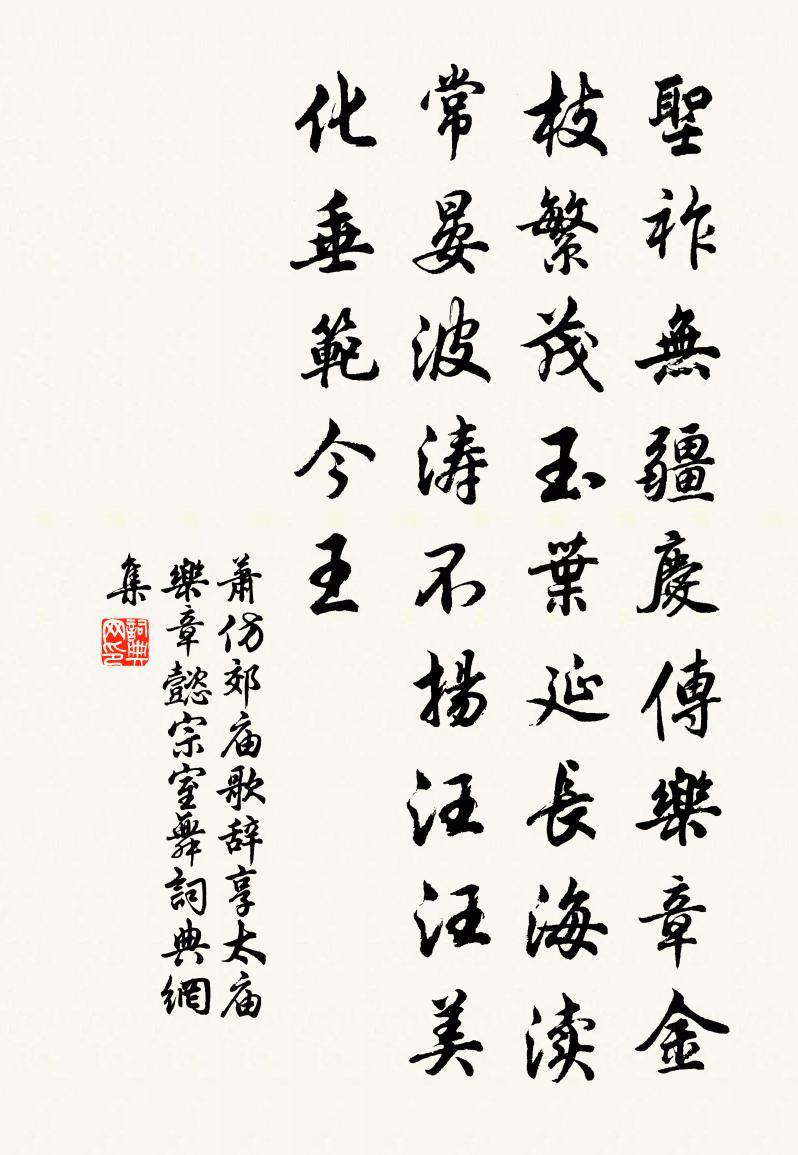 聖祚無疆慶傳樂章金
枝繁茂玉葉延長海渎
常晏波涛不揚汪汪美
化垂範今王
蕭仿郊庙歌辞享太庙
樂章懿宗室舞詞典網
集
詞典网印